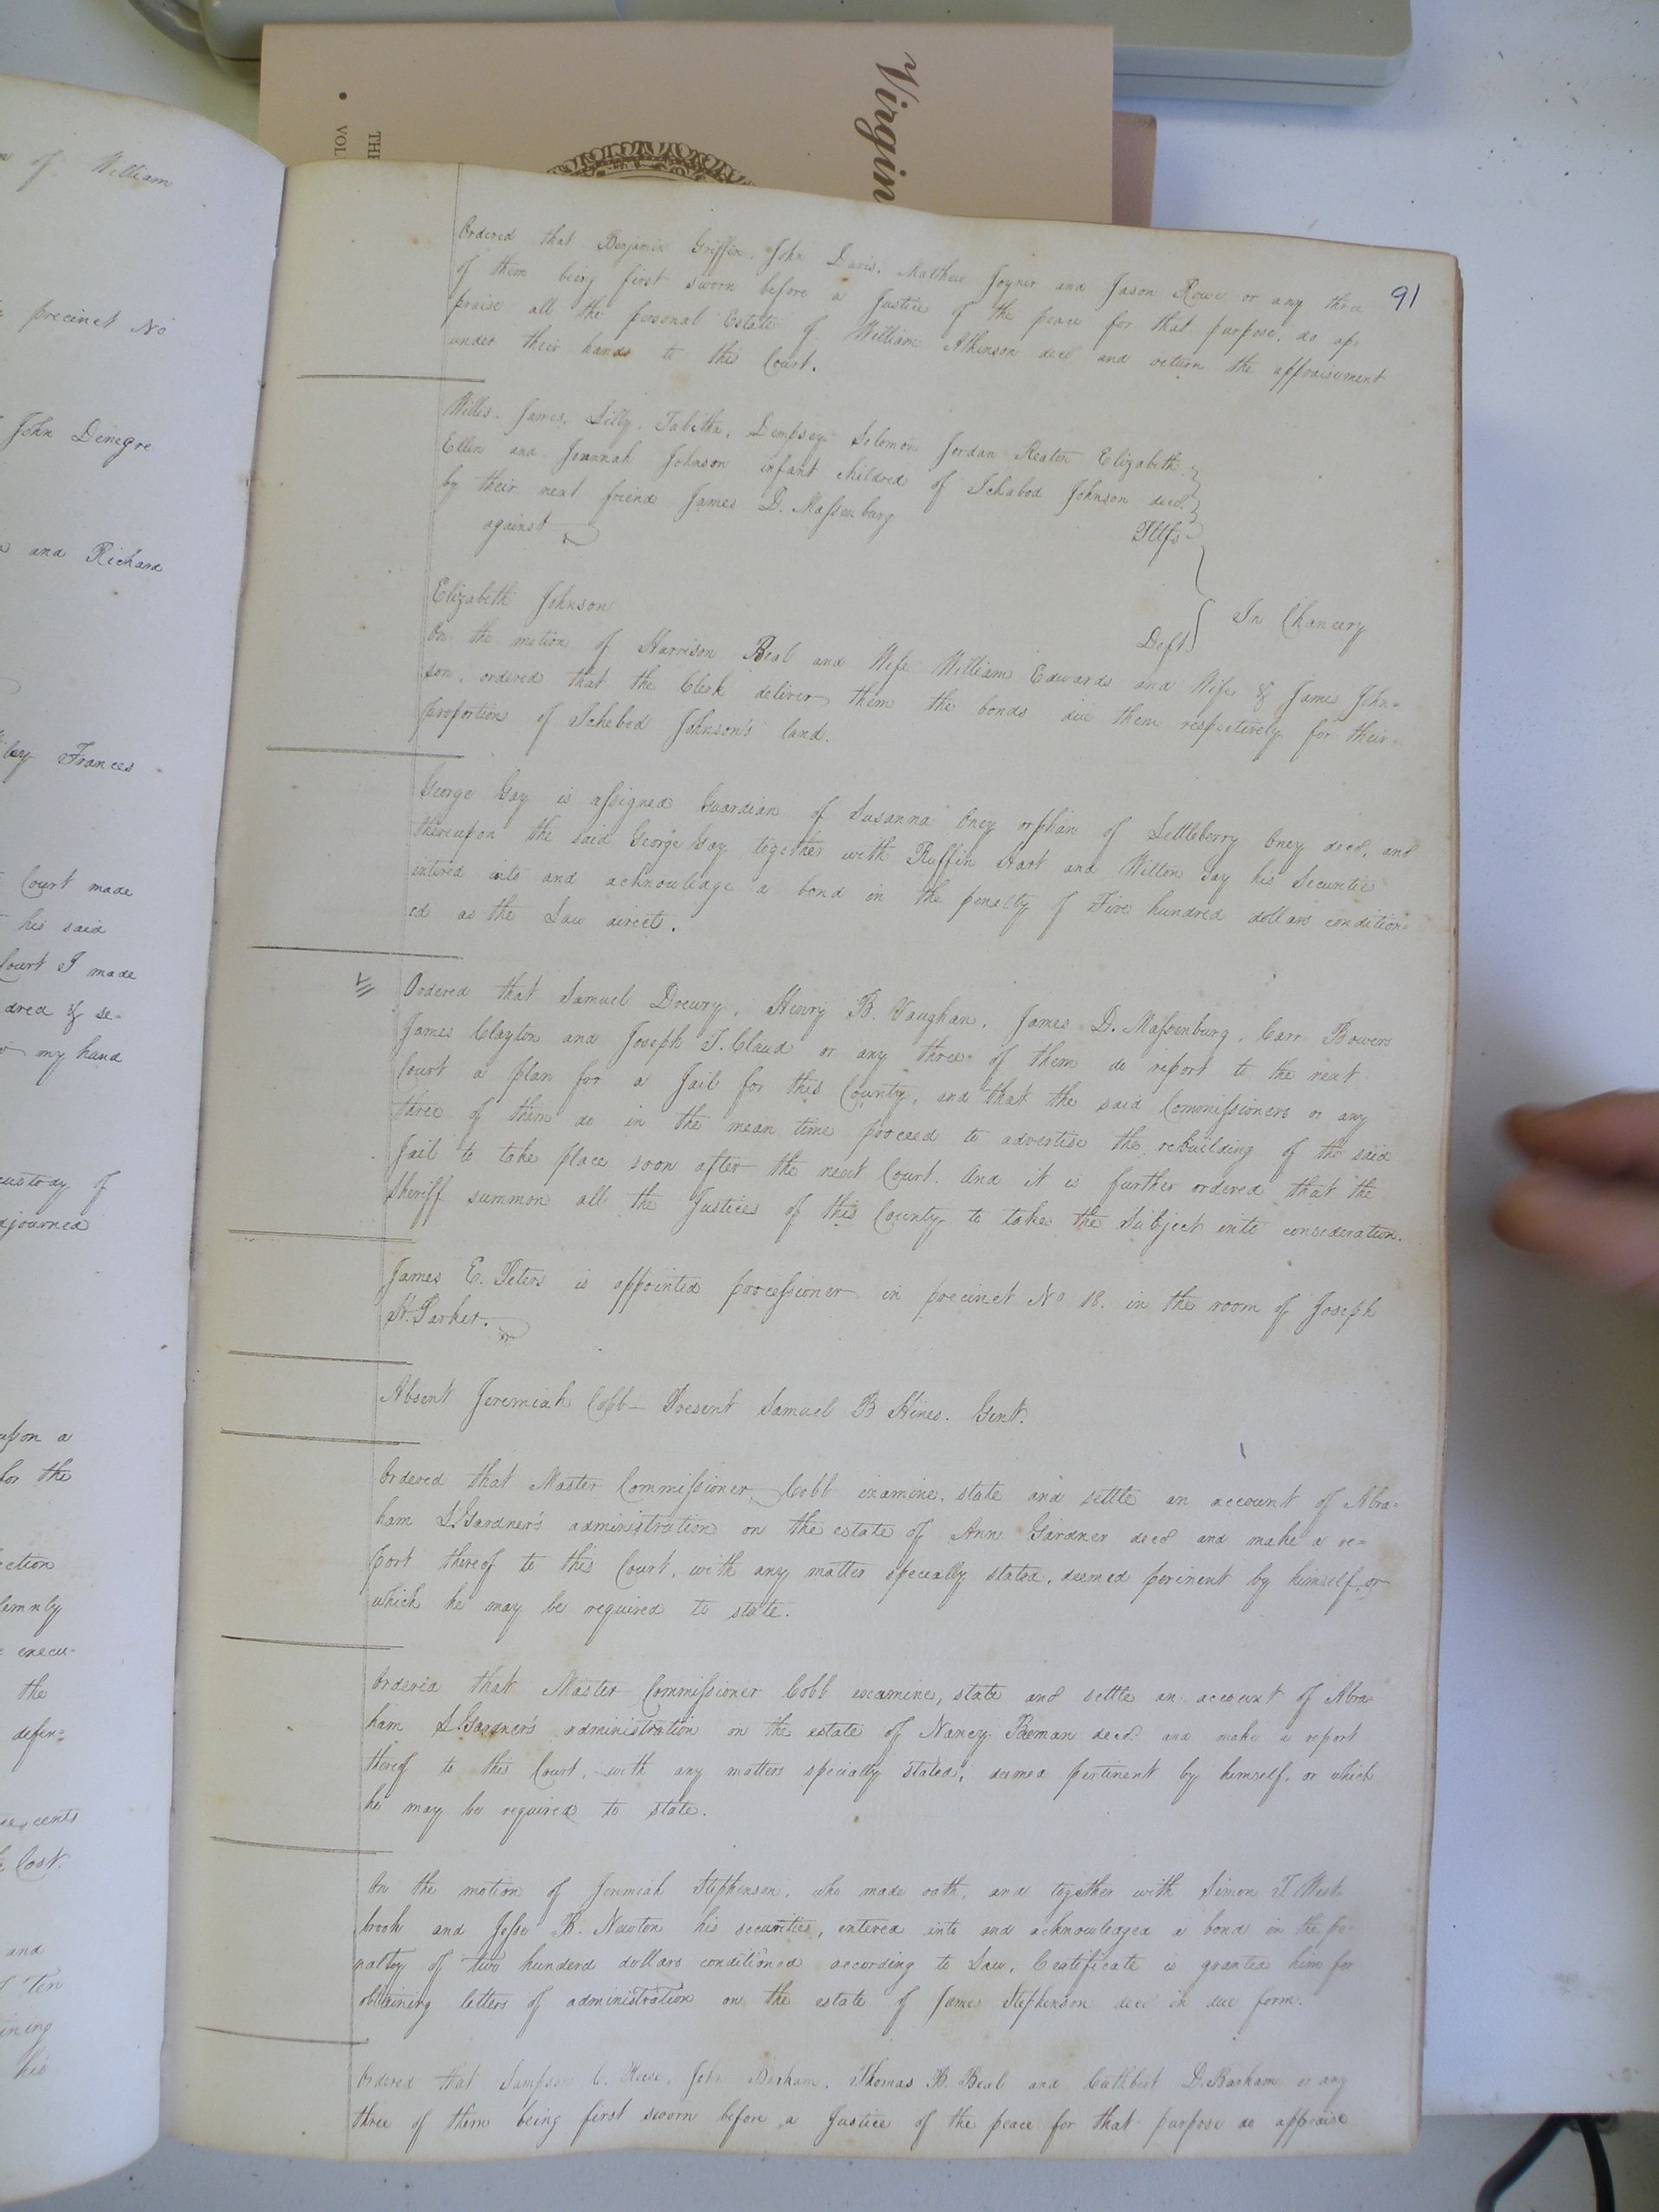 Virgin
THE
VOL
n of William
precinct No
John Denegre
and Richard
ley Frances
Court made
his said
Court I made
dred & se-
my hand
custody of
djourned
upon a
for the
ection
lemnly
execu-
the
defen-
cents
Cost.
and
Ten
ining
his
91
Ordered that Benjamin Griffin, John Davis, Matthew Joyner and Jason Rowe or any three
of them being first sworn before a Justice of the peace for that purpose, do ap-
praise all the personal Estate of William Atkinson decd and return the appraisement
under their hands to the Court.
Willis, James, Lilly, Tabitha, Dempsey Solomon Jordan Elizabeth
Ellen and Joannah Johnson infant childred of Ichabod Johnson decd.
by their next friend James D. Massenburg Pltfs
against
In Chancery
Elizabeth Johnson Deft
On the motion of Harrison Beal and Wife William Edwards and Wife & James John-
son, ordered that the Clerk deliver them the bonds due them respectively for their
proportions of Ichebod Johnson's land.
George Gay is assigned Guardian of Susanna Oney orphan of Settleberry Oney decd, and
thereupon the said George Gay together with Ruffin Hart and Wilton Gay his Securities
intered into and acknowledge a bond in the penalty of Five hundred dollars condition-
ed as the Law directs.
Ordered that Samuel Drewry, Henry B. Vaughan, James D. Massenburg, Carr Bowers
James Clayton and Joseph T. Claud or any three of them do report to the next
Court a plan for a Jail for this County, and that the said Commissioners or any
three of them do in the mean time proceed to advertise the rebuilding of the said
Jail to take place soon after the next Court. And it is further ordered that the
Sheriff summon all the Justices of this County to take the Subject into consideration.
James E. Peters is appointed processioner in precinct No 18. in the room of Joseph
H. Parker.
Absent Jeremiah Cobb - Present Samuel B Hines. Gent.
Ordered that Master Commissioner Cobb examine, state and settle an account of Abra-
ham L. Gardner's administration on the estate of Ann Gardner decd and make a re-
port thereof to this Court, with any matter specially stated, deemed perinent by himself or
which he may be required to state.
Ordered that Master Commissioner Cobb examine, state and settle an account of Abra-
ham L. Gardner's administration on the estate of Nancy Beman decd and make a report
thereof to this Court, with any matters specially stated, deemed pertinent by himself, or which
he may be required to state.
On the motion of Jeremiah Stephenson, who made oath, and together with Simon T. West
brook and Jesse B. Newton his securities, entered into and acknowledged a bond in the pe-
nalty of two hunderd dollars conditioned according to Law, Certificate is granted him for
obtaining letters of administration on the estate of James Stephenson decd in due form.
Ordered that Sampson C. Reese, John Barham, Thomas B. Beal and Cuthbert D. Barham or any
three of them being first sworn before a Justice of the peace for that purpose do appraise